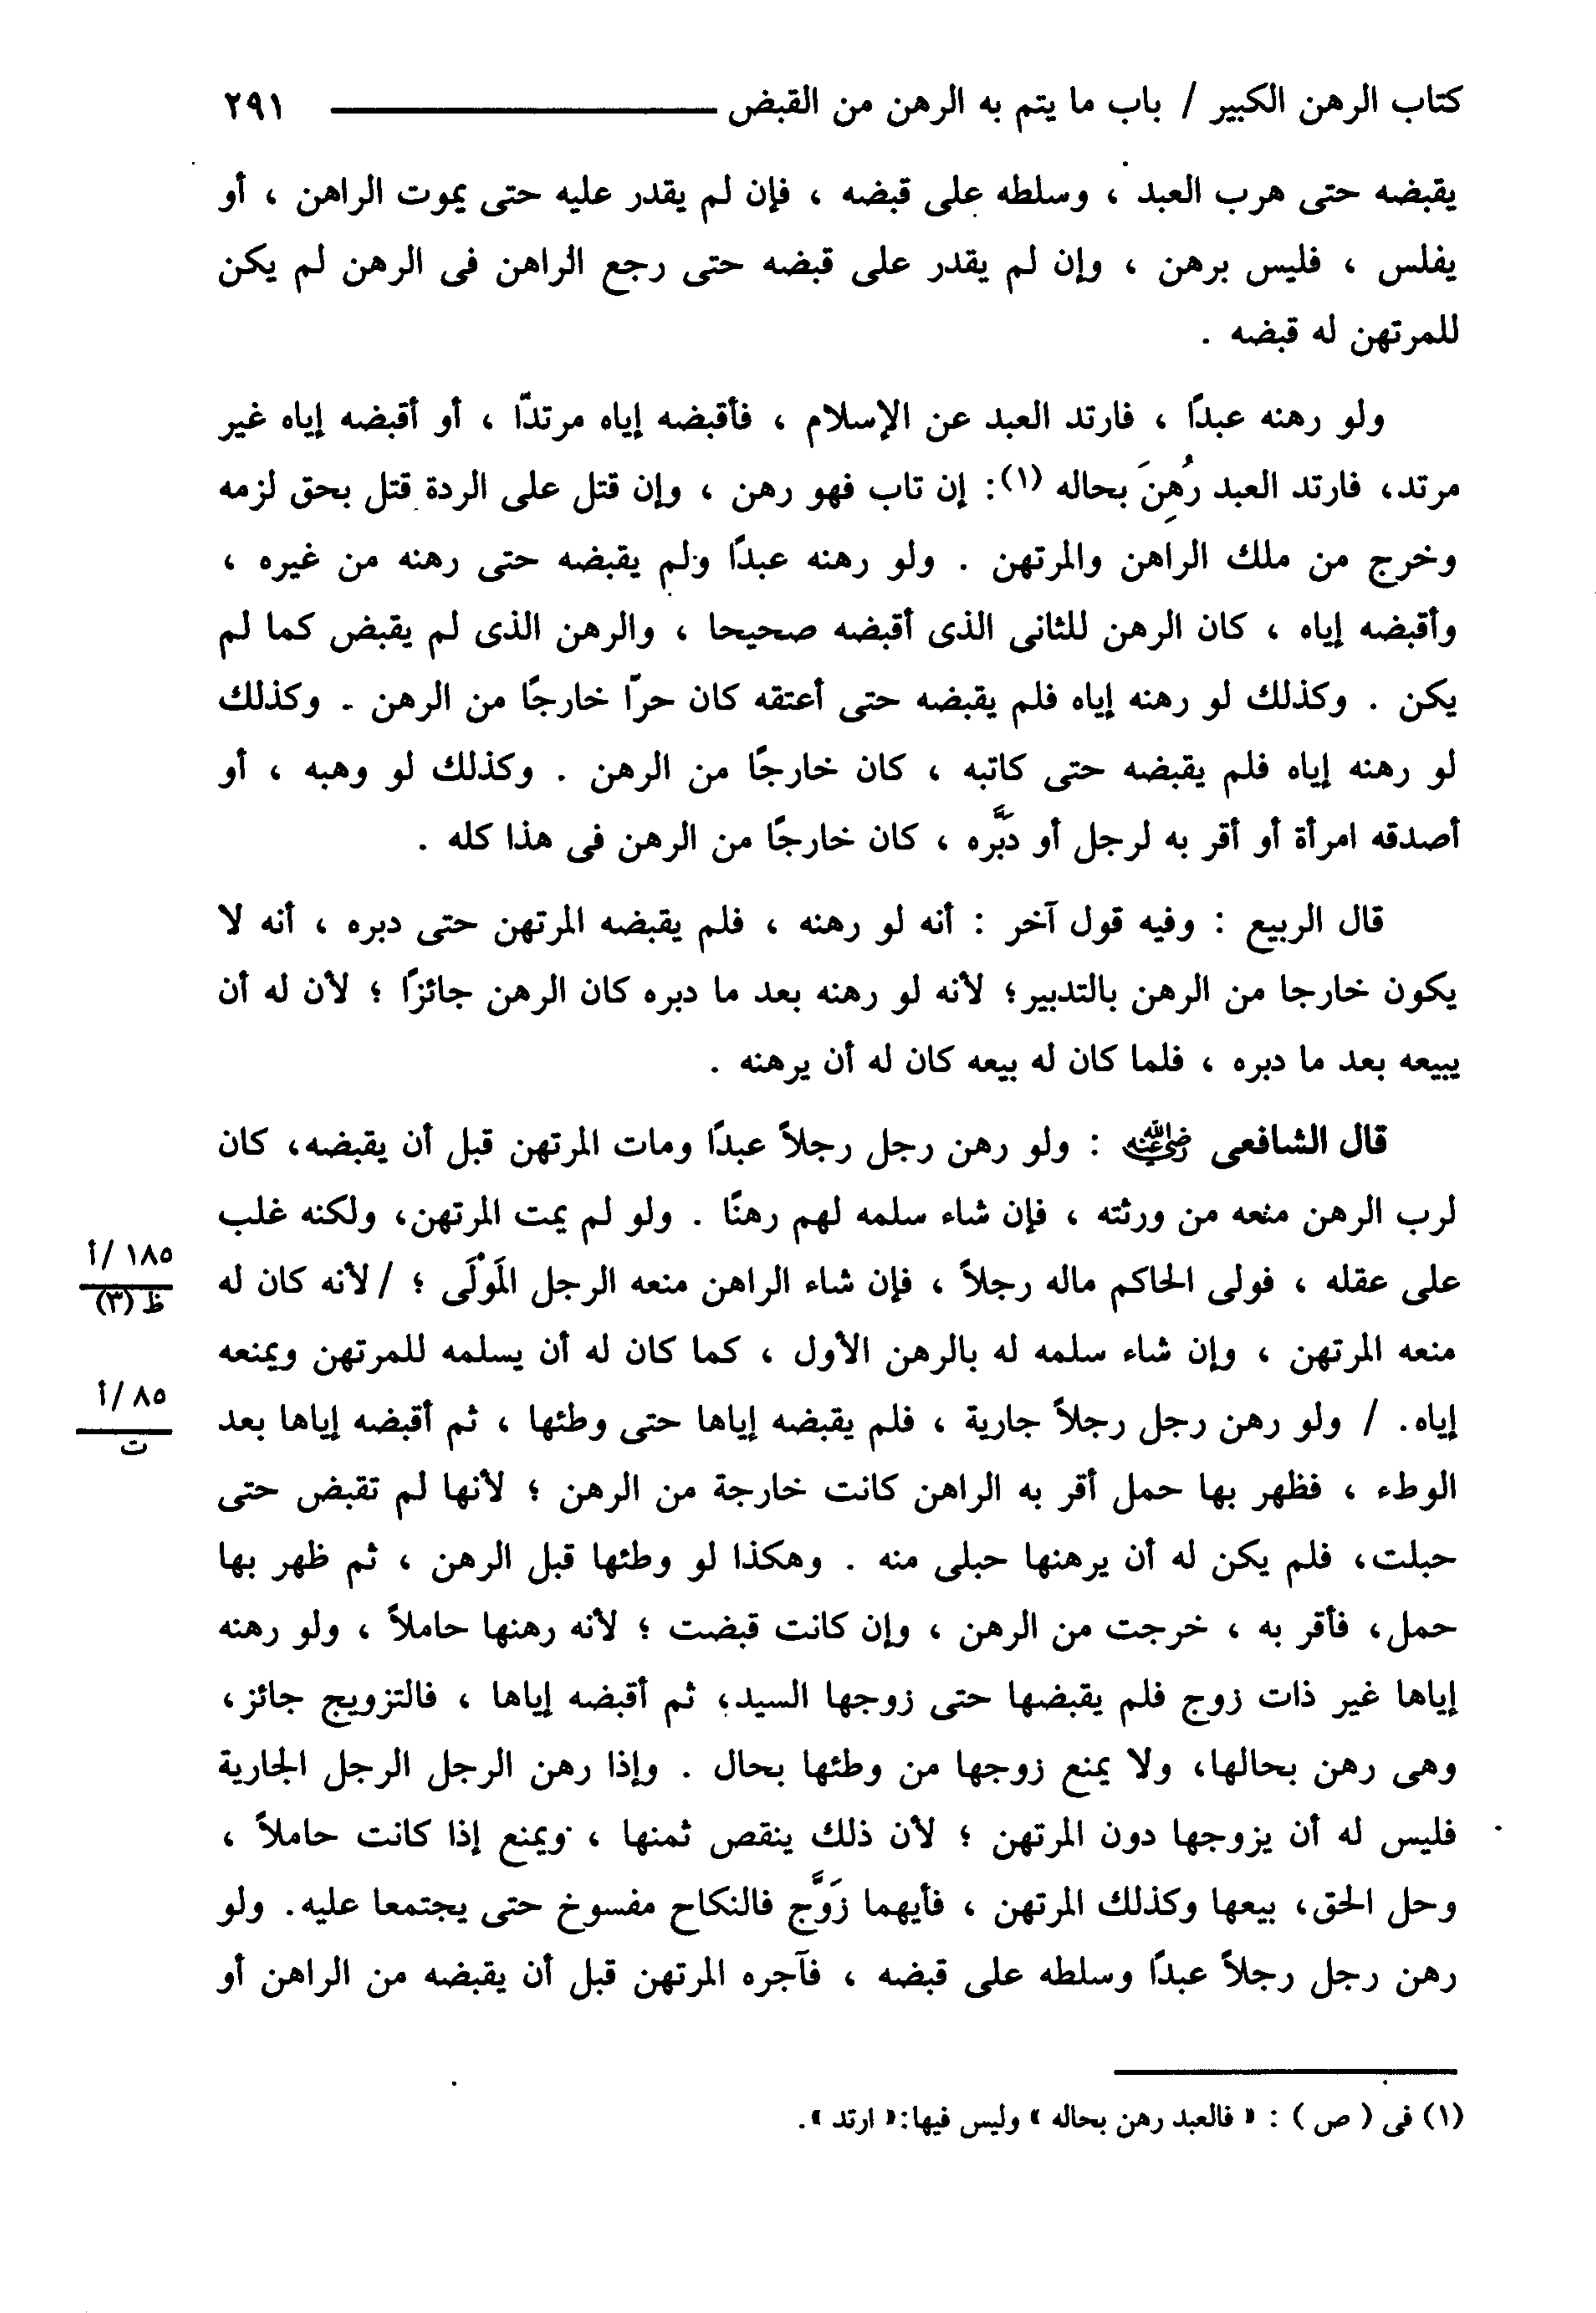 كتاب الرهن الكبير / باب ما يتم به الرهن من القبض ٢٩١
يقبضه حتى هرب العبد ، وسلطه على قبضه ، فإن لم يقدر عليه حتى يموت الراهن ، أو
يفلس ، فليس برهن ، وإن لم يقدر على قبضه حتى رجع الراهن فى الرهن لم يكن
للمرتهن له قبضه .
ولو رهنه عبدًا ، فارتد العبد عن الإسلام ، فأقبضه إياه مرتدًّا ، أو أقبضه إياه غير
مرتد، فارتد العبد رُهِنَ بحاله (١): إن تاب فهو رهن ، وإن قتل على الردة قتل بحق لزمه
وخرج من ملك الراهن والمرتهن . ولو رهنه عبدًا ولم يقبضه حتى رهنه من غيره ،
وأقبضه إياه ، كان الرهن للثانى الذى أقبضه صحيحا ، والرهن الذى لم يقبض كما لم
يكن . وكذلك لو رهنه إياه فلم يقبضه حتى أعتقه كان حرًّا خارجًا من الرهن . وكذلك
لو رهنه إياه فلم يقبضه حتى كاتبه ، كان خارجًا من الرهن . وكذلك لو وهبه ، أو
أصدقه امرأة أو أقر به لرجل أو دَبَّره ، كان خارجًا من الرهن فى هذا كله .
قال الربيع : وفيه قول آخر : أنه لو رهنه ، فلم يقبضه المرتهن حتى دبره ، أنه لا
يكون خارجا من الرهن بالتدبير؛ لأنه لو رهنه بعد ما دبره كان الرهن جائزًا ؛ لأن له أن
يبيعه بعد ما دبره ، فلما كان له بيعه كان له أن يرهنه .
قال الشافعى رضي الله عنه : ولو رهن رجل رجلاً عبدًا ومات المرتهن قبل أن يقبضه، كان
لرب الرهن منعه من ورثته ، فإن شاء سلمه لهم رهنًا . ولو لم يمت المرتهن، ولكنه غلب
على عقله ، فولى الحاكم ماله رجلاً ، فإن شاء الراهن منعه الرجل المَوْلَى ؛ / لأنه كان له
١٨٥ /أ
ظ (٣)
منعه المرتهن ، وإن شاء سلمه له بالرهن الأول ، كما كان له أن يسلمه للمرتهن ويمنعه
إياه. / ولو رهن رجل رجلاً جارية ، فلم يقبضه إياها حتى وطئها ، ثم أقبضه إياها بعد
٨٥ /أ
ت
الوطء ، فظهر بها حمل أقر به الراهن كانت خارجة من الرهن ؛ لأنها لم تقبض حتى
حبلت، فلم يكن له أن يرهنها حبلى منه . وهكذا لو وطئها قبل الرهن ، ثم ظهر بها
حمل، فأقر به ، خرجت من الرهن ، وإن كانت قبضت ؛ لأنه رهنها حاملاً ، ولو رهنه
إياها غير ذات زوج فلم يقبضها حتى زوجها السيد، ثم أقبضه إياها ، فالتزويج جائز،
وهى رهن بحالها، ولا يمنع زوجها من وطئها بحال . وإذا رهن الرجل الرجل الجارية
فليس له أن يزوجها دون المرتهن ؛ لأن ذلك ينقص ثمنها ، ويمنع إذا كانت حاملاً ،
وحل الحق، بيعها وكذلك المرتهن ، فأيهما زَوَّج فالنكاح مفسوخ حتى يجتمعا عليه. ولو
رهن رجل رجلاً عبدًا وسلطه على قبضه ، فآجره المرتهن قبل أن يقبضه من الراهن أو
(١) فى ( ص ) : « فالعبد رهن بحاله » وليس فيها: « ارتد ».